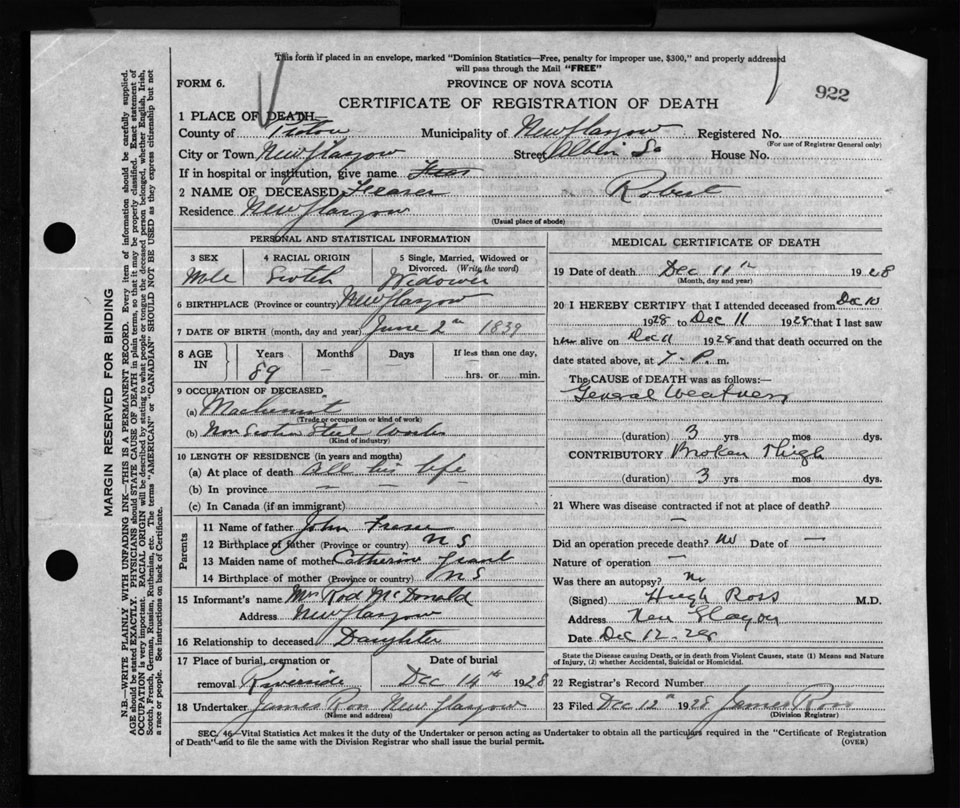 This form if placed in an envelope, marked "Dominion Statistics—Free, penalty for improper use, $300," and properly addressed
will pass through the Mail "FREE"
FORM 6.
PROVINCE OF NOVA SCOTIA
922
CERTIFICATE OF REGISTRATION OF DEATH
1 PLACE OF DEATH—
County of Pictou Municipality of New Glasgow Registered No.
(For use of Registrar General only)
City or Town New Glasgow Street Albin St House No.
If in hospital or institution, give name
2 NAME OF DECEASED Fraser Robert
Residence New Glasgow
(Usual place of abode)
PERSONAL AND STATISTICAL INFORMATION
3 SEX 4 RACIAL ORIGIN 5 Single, Married, Widowed or Divorced. (Write the word)
Male Scotch Widower
6 BIRTHPLACE (Province or country) New Glasgow
7 DATE OF BIRTH (month, day and year) June 2nd 1839
8 AGE IN Years Months Days If less than one day,
89 — hrs. or min.
9 OCCUPATION OF DECEASED
(a) Machinist
(Trade or occupation or kind of work)
(b) Nova Scotia Steel Works
(Kind of industry)
10 LENGTH OF RESIDENCE (in years and months)
(a) At place of death all his life
(b) In province — —
(c) In Canada (if an immigrant)
Parents
11 Name of father John Fraser
12 Birthplace of father (Province or country) N S
13 Maiden name of mother Catherine Grant
14 Birthplace of mother (Province or country) N S
15 Informant's name Mrs Rod McDonald
Address New Glasgow
16 Relationship to deceased Daughter
17 Place of burial, cremation or removal Riverside Date of burial Dec 14th 1928
18 Undertaker James Ross New Glasgow
(Name and address)
MEDICAL CERTIFICATE OF DEATH
19 Date of death Dec 11th 1928
(Month, day and year)
20 I HEREBY CERTIFY that I attended deceased from Dec 10
1928 to Dec 11 1928 that I last saw
him alive on Dec 11 1928 and that death occurred on the
date stated above, at 7-P. m.
The CAUSE OF DEATH was as follows:—
General Weakness
(duration) 3 yrs mos dys.
CONTRIBUTORY Broken Thigh
(duration) 3 yrs mos dys.
21 Where was disease contracted if not at place of death?
—
Did an operation precede death? No Date of —
Nature of operation —
Was there an autopsy? No
(Signed) Hugh Ross M.D.
Address New Glasgow
Date Dec 12-28
State the Disease causing Death, or in death from Violent Causes, state (1) Means and Nature
of Injury, (2) whether Accidental, Suicidal or Homicidal.
22 Registrar's Record Number
23 Filed Dec 12th 1928 James Ross
(Division Registrar)
SEC. 46—Vital Statistics Act makes it the duty of the Undertaker or person acting as Undertaker to obtain all the particulars required in the "Certificate of Registration
of Death" and to file the same with the Division Registrar who shall issue the burial permit.
(OVER)
MARGIN RESERVED FOR BINDING
N.B.—WRITE PLAINLY WITH UNFADING INK—THIS IS A PERMANENT RECORD. Every item of information should be carefully supplied.
AGE should be stated EXACTLY. PHYSICIANS should STATE CAUSE OF DEATH in plain terms, so that it may be properly classified. Exact statement of
OCCUPATION is very important. RACIAL ORIGIN will be described by stating to what people or tongue the deceased person belonged, whether English, Irish,
Scotch, French, German, Russian, Ruthenian, etc. The terms "AMERICAN" or "CANADIAN" SHOULD NOT BE USED as they express citizenship but not
a race or people. See instructions on back of Certificate.